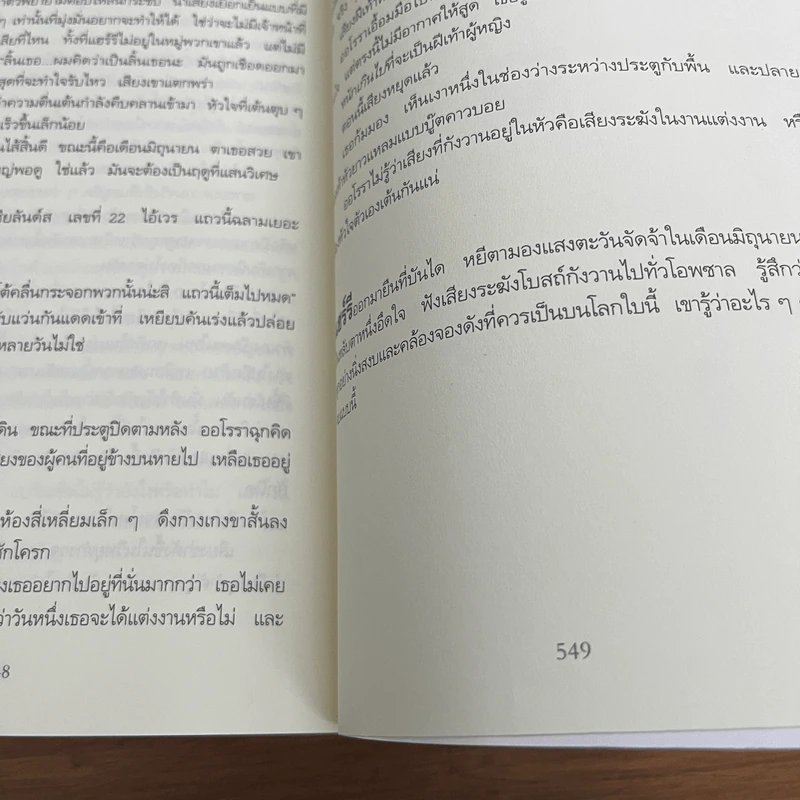 ๆ เท่านั้นที่มุ่งมั่นอยากจะทำให้ได้ ใช่ว่าจะไม่มีเจ้าหน้าที่
เสียที่ไหน ทั้งที่แฮร์รีไม่อยู่ในหมู่พวกเขาแล้ว แต่ไม่มี
“ลิ้นเธอ...ผมคิดว่าเป็นลิ้นเธอนะ มันถูกเชือดออกมา
สุดที่จะทำใจรับไหว เสียงเขาแตกพร่า
ความตื่นเต้นกำลังคืบคลานเข้ามา หัวใจที่เต้นตุบ ๆ
เร็วขึ้นเล็กน้อย
ไส้สิ้นดี ขณะนี้คือเดือนมิถุนายน ตาเธอสวย เขา
พอดู ใช่แล้ว มันจะต้องเป็นฤดูที่แสนวิเศษ
เลขที่ 22 ไอ้เวร แถวนี้ฉลามเยอะ
คลื่นกระจอกพวกนั้นน่ะสิ แถวนี้เต็มไปหมด”
แว่นกันแดดเข้าที่ เหยียบคันเร่งแล้วปล่อย
หลายวันไม่ใช่
ขณะที่ประตูปิดตามหลัง ออโรราฉุกคิด
ของผู้คนที่อยู่ข้างบนหายไป เหลือเธออยู่
ห้องสี่เหลี่ยมเล็ก ๆ ดึงกางเกงขาสั้นลง
ชักโครก
เธออยากไปอยู่ที่นั่นมากกว่า เธอไม่เคย
ว่าวันหนึ่งเธอจะได้แต่งงานหรือไม่ และ
8
แต่ตรงนี้ไม่มีอากาศให้สูด
หนักเกินไปที่จะเป็นฝีเท้าผู้หญิง
ตอนนี้เสียงหยุดแล้ว
เธอก้มมอง เห็นเงาหนึ่งในช่องว่างระหว่างประตูกับพื้น และปลาย
หัวยาวแหลมแบบบู๊ตคาวบอย
ออโรราไม่รู้ว่าเสียงที่กังวานอยู่ในหัวคือเสียงระฆังในงานแต่งงาน
หัวใจตัวเองเต้นกันแน่
ออกมายืนที่บันได หยีตามองแสงตะวันจัดจ้าในเดือนมิถุนายน
หลับตาหนึ่งอึดใจ ฟังเสียงระฆังโบสถ์กังวานไปทั่วโอพซาล รู้สึก
อย่างนิ่งสงบและคล้องจองดังที่ควรเป็นบนโลกใบนี้ เขารู้ว่าอะไร ๆ
แบบนี้
549